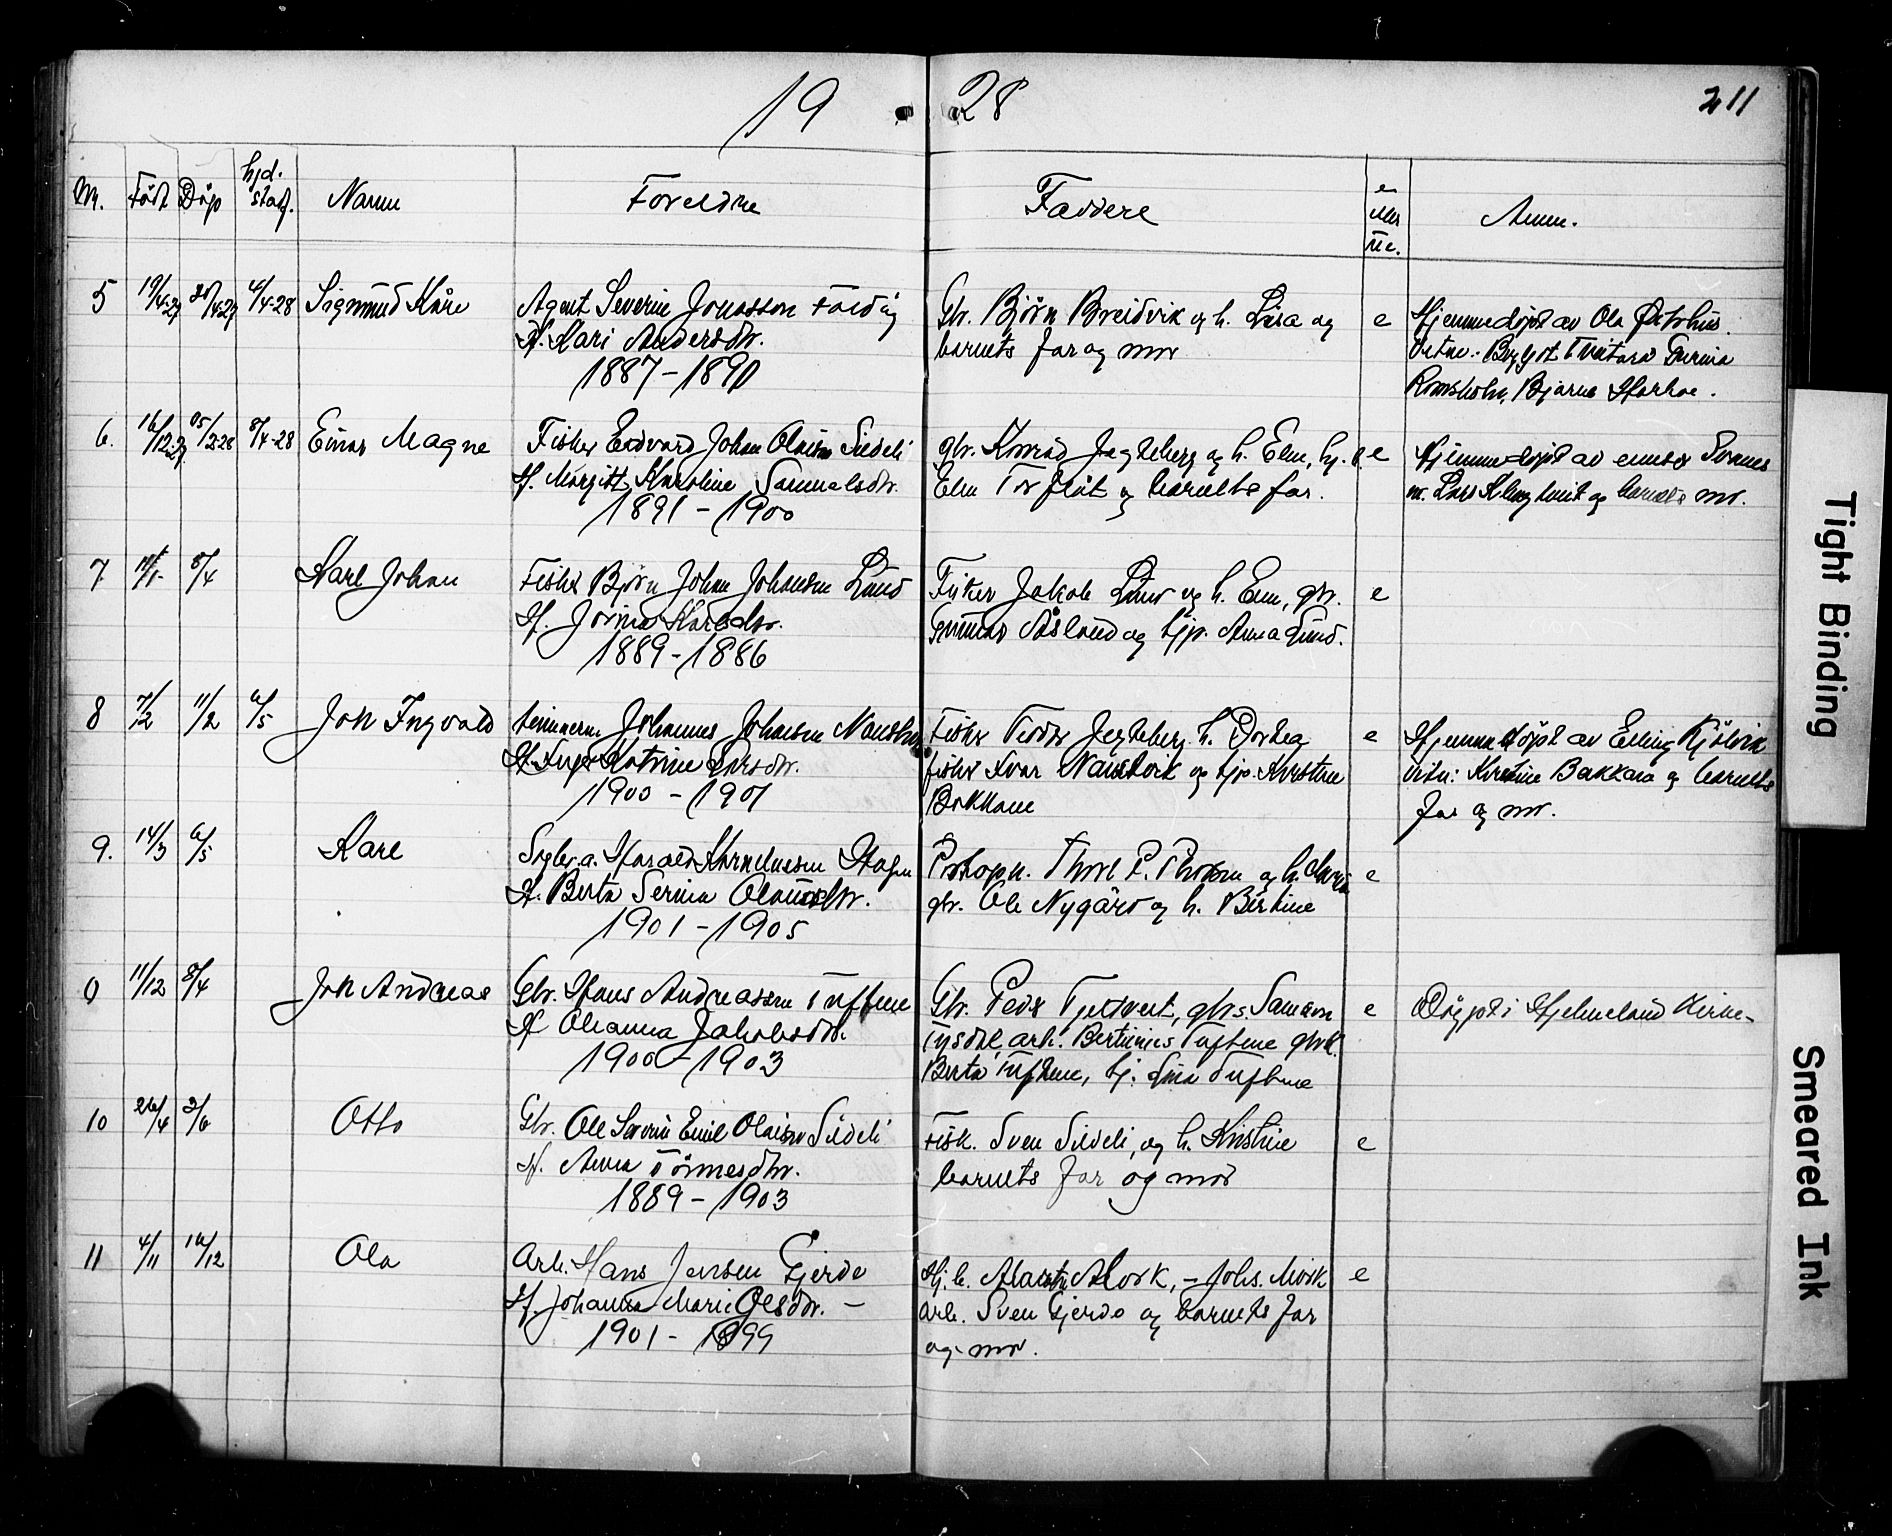 19 28
211
Nr. Född Döp hjd. stadf. Namn Foreldre Faddere e eller ue. Anm.
5 19/4-27 /4-27 /4-28 Sigmund Kåre
Agent Severin Jonasson
H. Kari Andersdtr.
1887-1890
Gbr. Bjørn Breidvik og h. Lisa og e
barnets far og mor
Hjemmedøpt av Ola
Vitne:
Bjarne
6. 16/12-27 /2-28 8/4-28 Einar Magne
Fisker Edvard Johan Olaisen Sildeli
H. Margitt Karoline Samuelsdtr.
1891-1900
gbr. Konrad Jegteberg og h. Elen, hj. e
Elen og barnets far.
Hjemmedøpt av
m. Lars og barnets mor.
7 /1 8/4 Karl Johan
Fisker Bjørn Johan Johansen Lund
H. Jorina Karlsdtr.
1889-1886
Fisker Jakob Lund og h. Elen, gbr. e
Gunnar Åsland og hjp. Anna Lund.
8 7/2 11/2 6/5 Jon Ingvald
tømmerm. Johannes Johnsen
H. Inger Katrine Larsdtr.
1900-1901
Fisker Peder Jegteberg h. Dortea e
fisker Ivar Naustvik og hjp. Kirstine
Bakkane
Hjemmedøpt av Elling Kjölvik
Vitn: Kirstine Bakkane og barnets
far og mor.
9. 14/3 6/5 Kare
H. Berta Serina
1901-1905
Thore P. og h. e
gbr. Ole Nygård og h. Bertine
9 11/12 8/4 Jon Andreas
Gbr. Hans Andreassen Tuftene
H Olianna Jakobsdtr.
1900-1903
Gbr. Peder Tjeltveit, gbrs. Samson e
Tysdal, arb. Bertinius Tuftene gbrk.
Berta Tuftene, hj. Tuftene
Døypt i Hjelmeland Kirke-
10 26/4 3/6 Otto
Gbr. Ole Severin Emil Olaisen Sildeli
H. Anna Tormesdtr.
1889-1903
Fisk. Sven Sildeli, og h. Kristine e
barnets far og mor
11 4/11 16/12 Ola
Arb. Hans Jensen Gjerde
H. Johanna Marie Olsdtr. -
1901-1899
Hj.h. Mork, - Johs. Mork e
arb. Sven Gjerde og barnets far
og mor.
Tight Binding
Smeared Ink